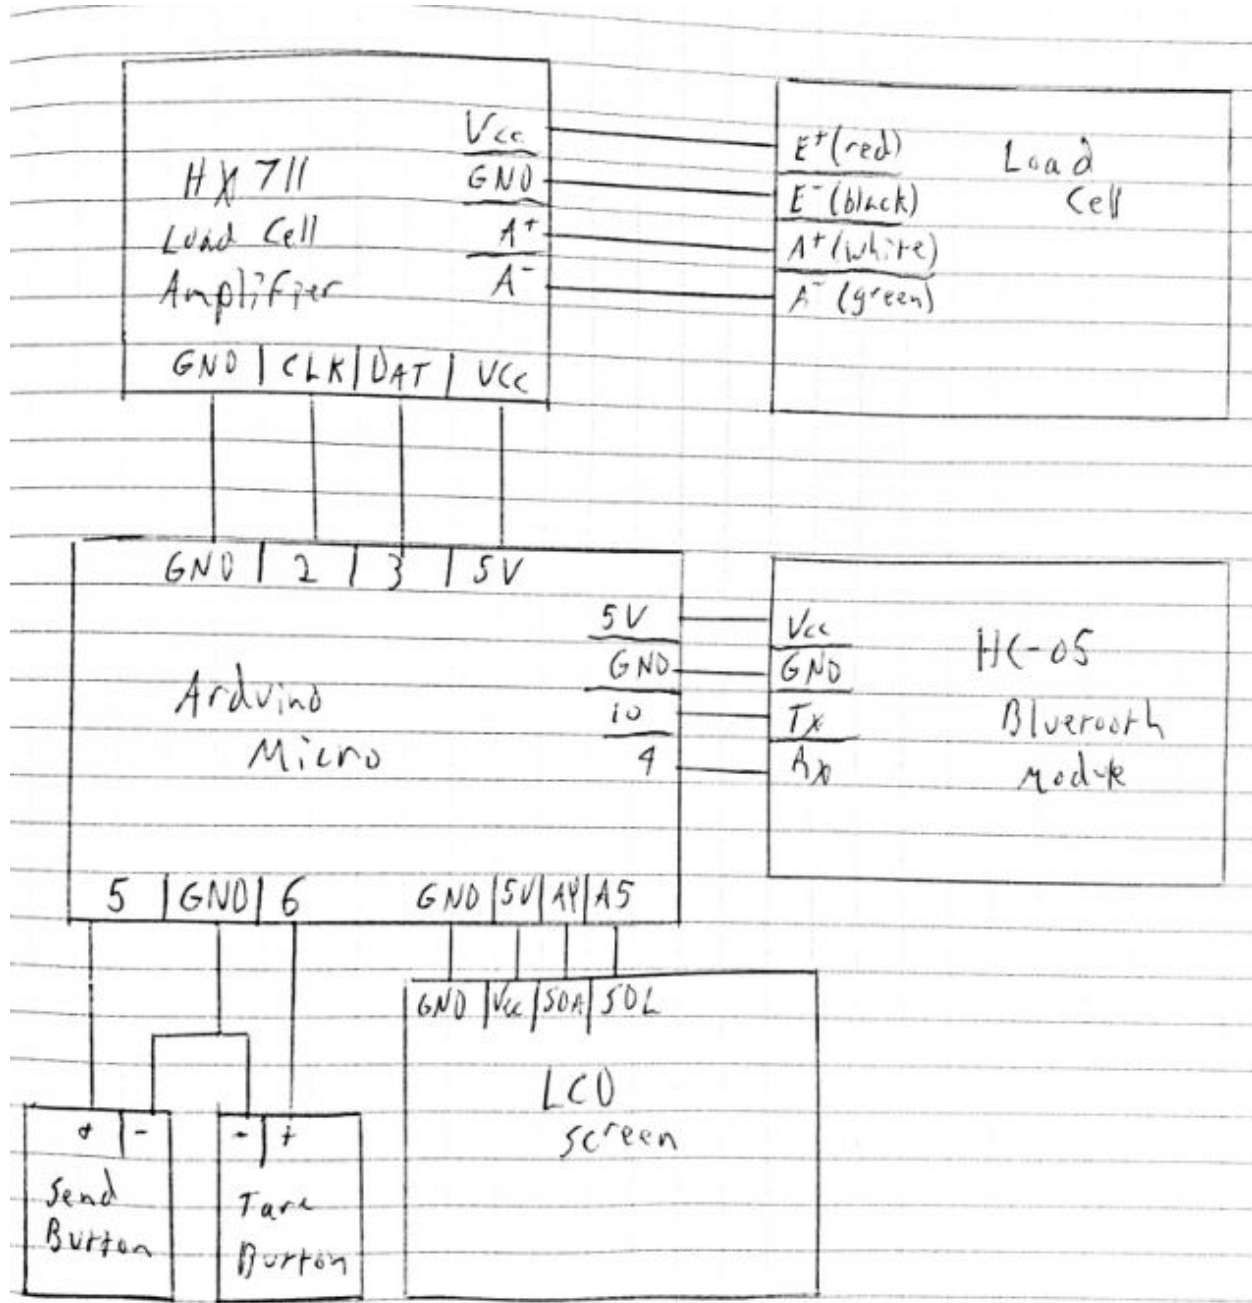 Vcc
GND
A+
A-
HX711
Load Cell
Amplifier
GND | CLK | DAT | VCC
E+ (red)
E- (black)
A+ (white)
A- (green)
Load
Cell
GND | 2 | 3 | 5V
5V
GND
10
4
Arduino
Micro
Vcc
GND
Tx
Rx
HC-05
Bluetooth
Module
5 | GND | 6
GND | 5V | A4 | A5
GND | Vcc | SDA | SDL
LCD
screen
+ | -
Send
Button
- | +
Tare
Button